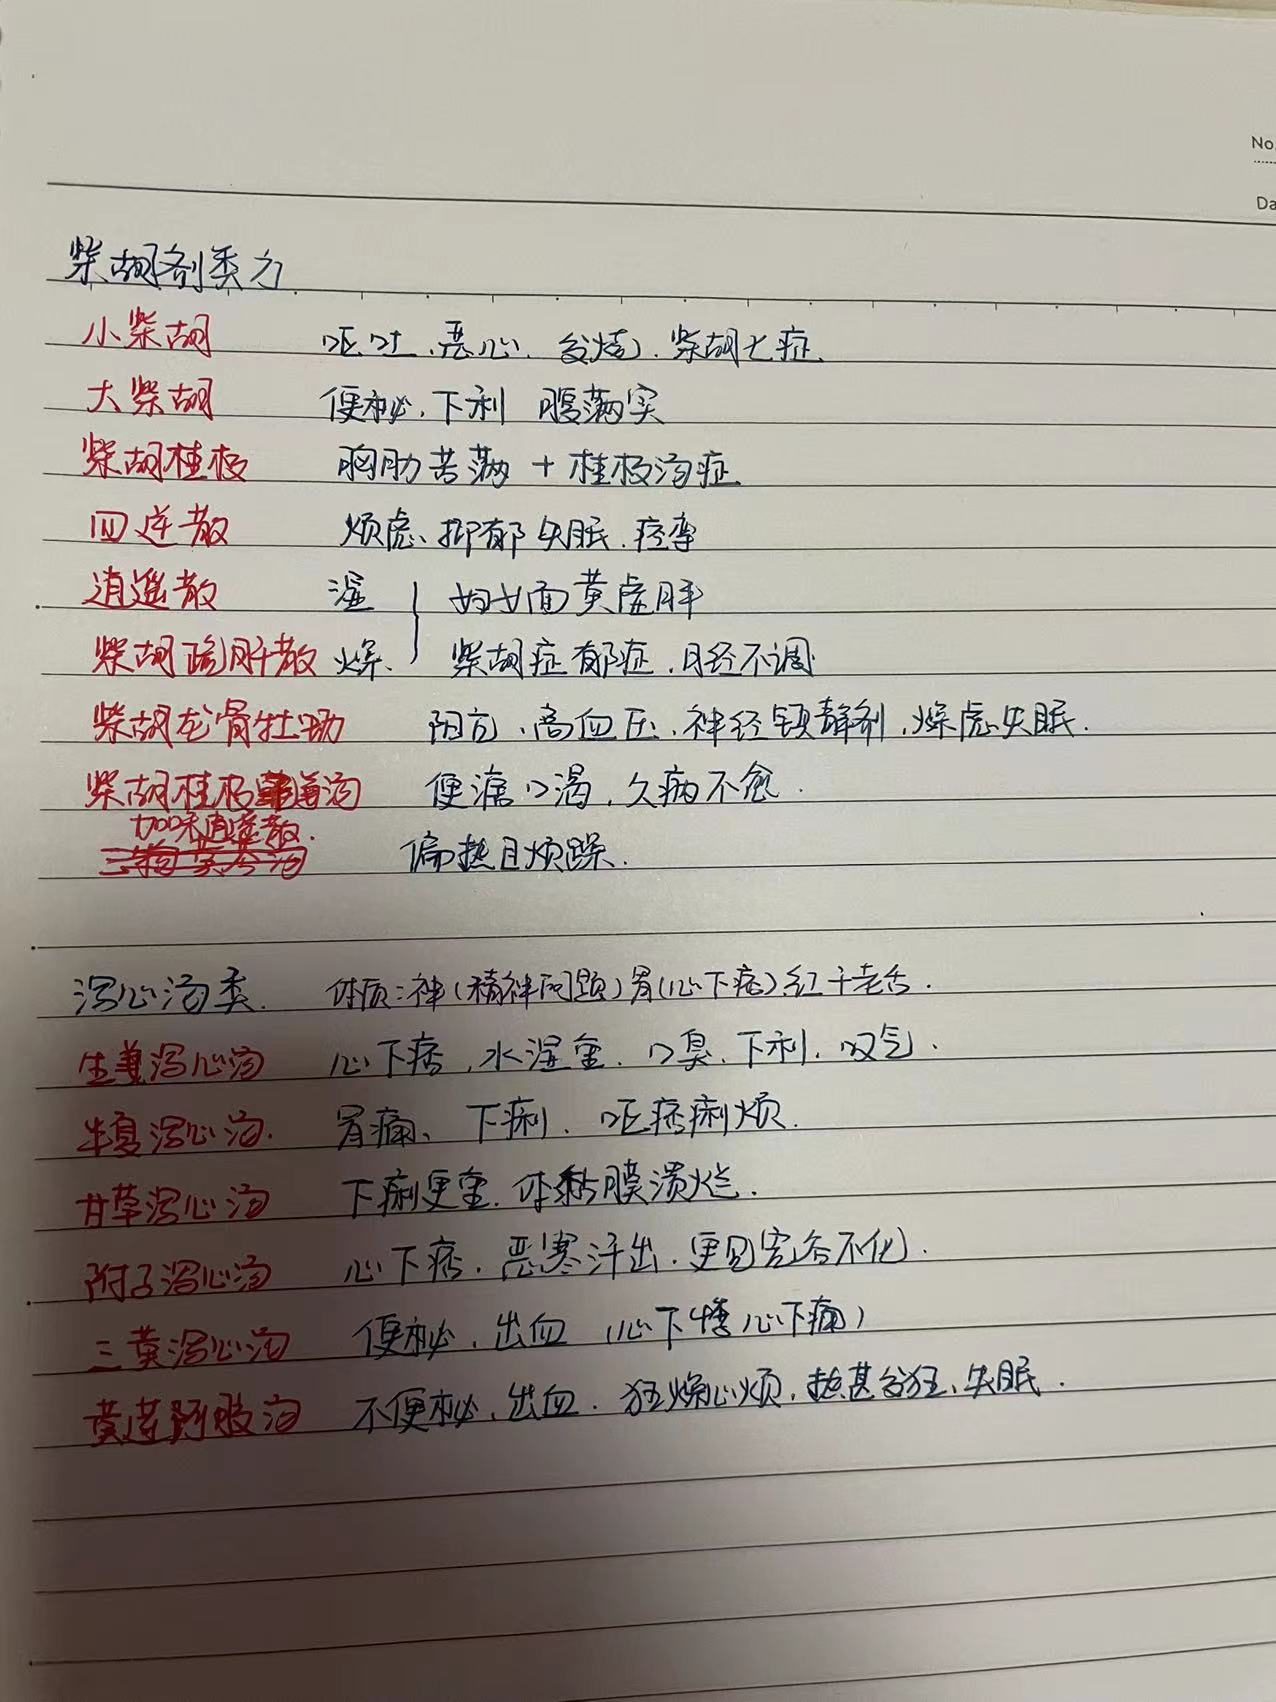 No.
Da
柴胡剂类方
小柴胡 呕吐、恶心、发烧、柴胡七症.
大柴胡 便秘、下利 腹满实
柴胡桂枝 胸肋苦满 + 桂枝汤症
四逆散 烦虑、抑郁失眠、痉挛
逍遥散 湿 } 妇女面黄虚胖
柴胡疏肝散 燥. 柴胡症郁症、月经不调
柴胡龙骨牡蛎 阳亢、高血压、神经镇静剂、燥虑失眠.
柴胡桂枝干姜汤 便溏口渴、久病不愈.
加味逍遥散.
偏热且烦躁.
泻心汤类. 体质:神(精神问题)胃(心下痞)红干老舌.
生姜泻心汤 心下痞、水湿重、口臭、下利、叹气.
半夏泻心汤. 胃痛、下痢、呕痞痢烦.
甘草泻心汤 下痢更重、体黏膜溃烂.
附子泻心汤 心下痞、恶寒汗出、更见完谷不化.
三黄泻心汤 便秘、出血 (心下悸心下痛)
黄连阿胶汤 不便秘、出血、狂燥心烦、热甚发狂、失眠.